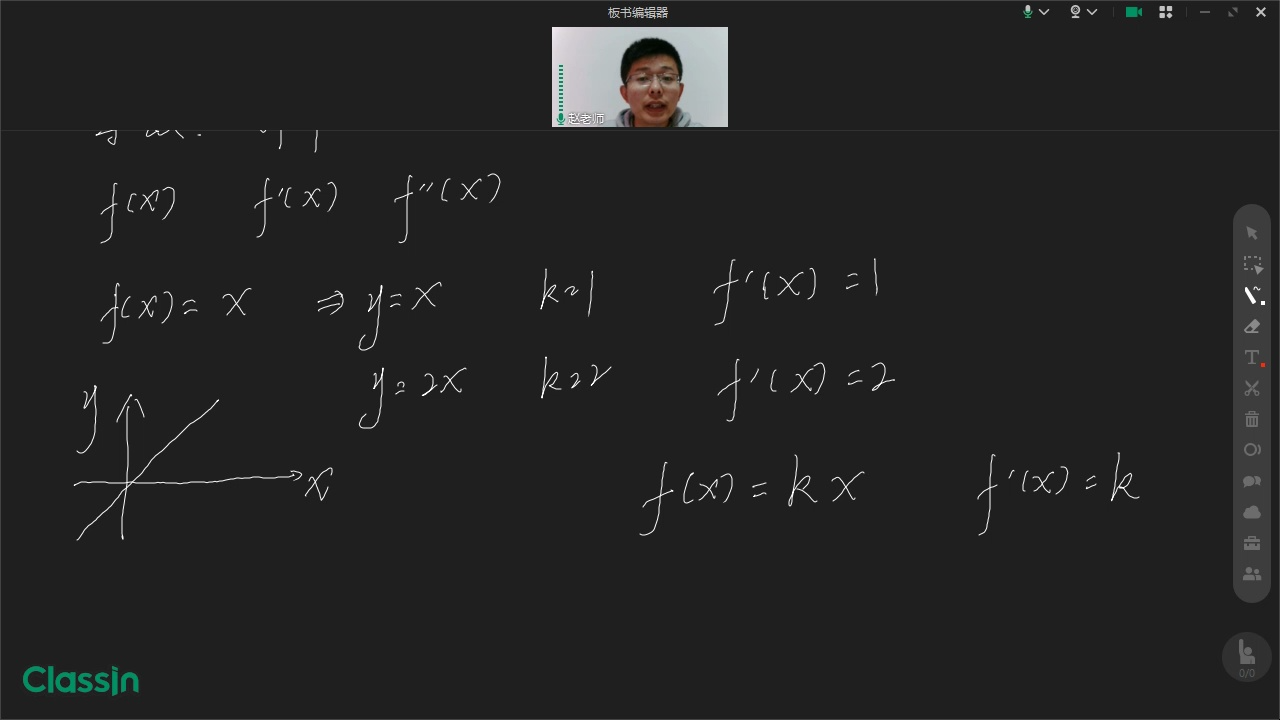 板书编辑器
赵老师
f(x) f'(x) f''(x)
f(x) = x ⇒ y = x k=1 f'(x) = 1
y = 2x k=2 f'(x) = 2
y
x
f(x) = kx f'(x) = k
T
0/0
ClassIn